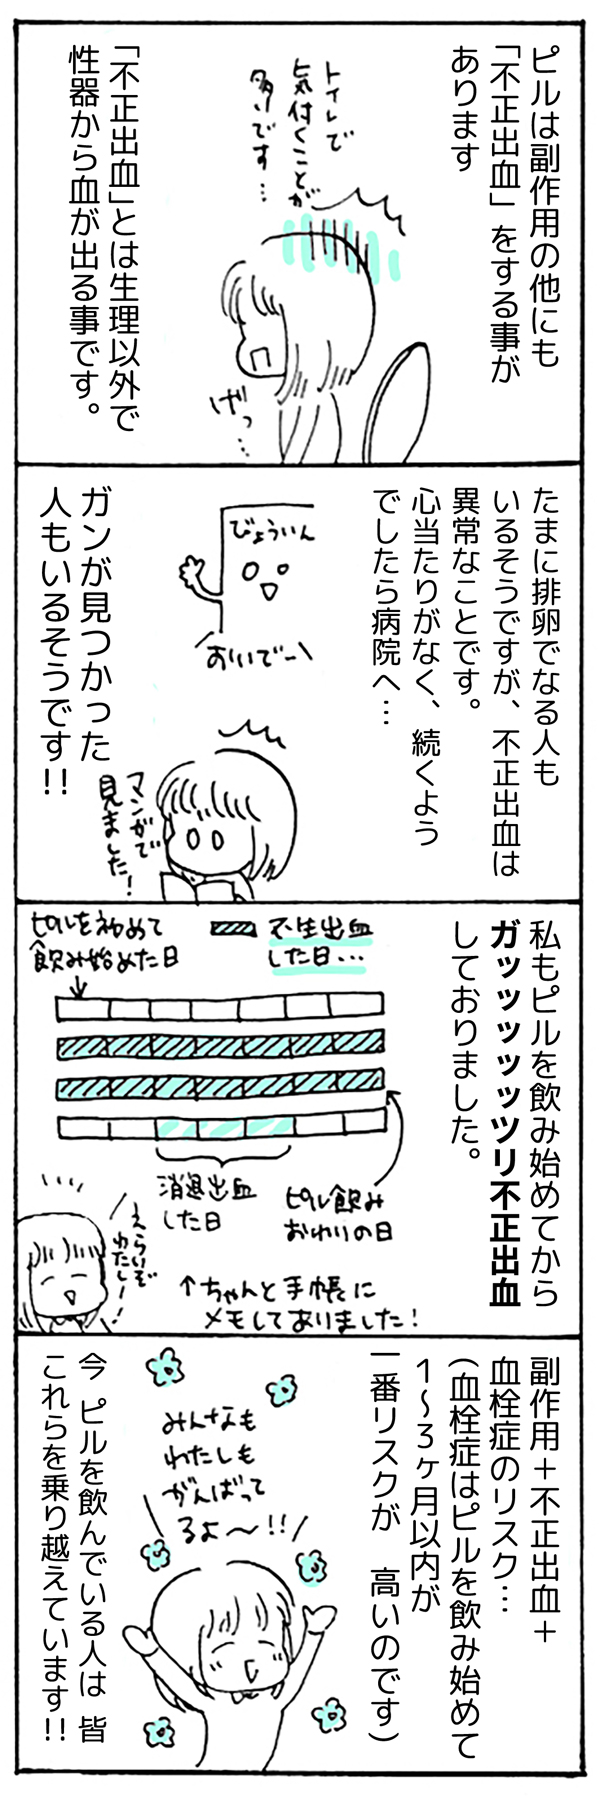 ピルは副作用の他にも
「不正出血」をする事が
あります
トイレで
気付くことが
多いです…
げっ…
「不正出血」とは生理以外で
性器から血が出る事です。
たまに排卵でなる人も
いるそうですが、不正出血は
異常なことです。
心当たりがなく、続くよう
でしたら病院へ…
びょういん
おいでー
マンガで
見ました!
ガンが見つかった
人もいるそうです!!
私もピルを飲み始めてから
ガッッッッッツリ不正出血
しておりました。
ピルを初めて
飲み始めた日
不正出血
した日…
消退出血
した日
ピル飲み
おわりの日
↑ちゃんと手帳に
メモしてありました!
えらいぞ
わたしー!
副作用+不正出血+
血栓症のリスク…
(血栓症はピルを飲み始めて
1〜3ヶ月以内が
一番リスクが 高いのです)
みんなも
わたしも
がんばって
るよ〜!!
今 ピルを飲んでいる人は 皆
これらを乗り越えています!!